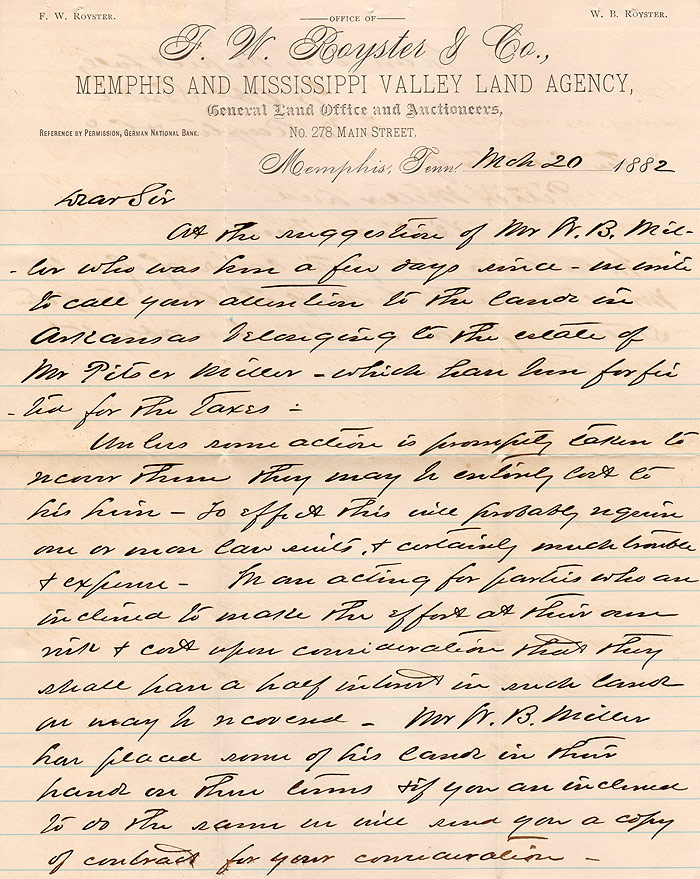 F. W. Royster. OFFICE OF W. B. Royster.
F. W. Royster & Co.,
MEMPHIS AND MISSISSIPPI VALLEY LAND AGENCY,
General Land Office and Auctioneers,
Reference by Permission, German National Bank. No. 278 Main Street,
Memphis, Tenn. Mch 20 1882
Dear Sir
At the suggestion of Mr W. B. Mil-
-ler who was here a few days since - we write
to call your attention to the lands in
Arkansas belonging to the estate of
Mr Pitser Miller - which have been forfei
-ted for the Taxes -
Unless some action is promptly taken to
recover them they may be entirely lost to
his heirs - To effect this will probably require
one or more law suits, & certainly much trouble
& expense - We are acting for parties who are
inclined to make the effort at their own
risk & cost upon consideration that they
shall have a half interest in such lands
as may be recovered - Mr W. B. Miller
has placed some of his lands in their
hands on these terms & if you are inclined
to do the same we will send you a copy
of contract for your consideration -